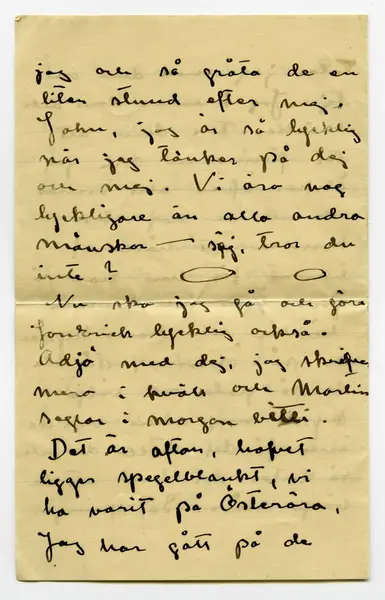 jag och så gråta de en
liten stund efter mej.
John, jag är så lycklig
när jag tänker på dej
och mej. Vi äro nog
lyckligare än alla andra
mänskor — säj, tror du
inte?
Nu ska jag gå och göra
lycklig också.
Adjö med dej, jag skriver
mera i kväll och Martin
seglar i morgon bitti.
Det är afton, hafvet
ligger spegelblankt, vi
ha varit på Österöra,
Jag har gått på de